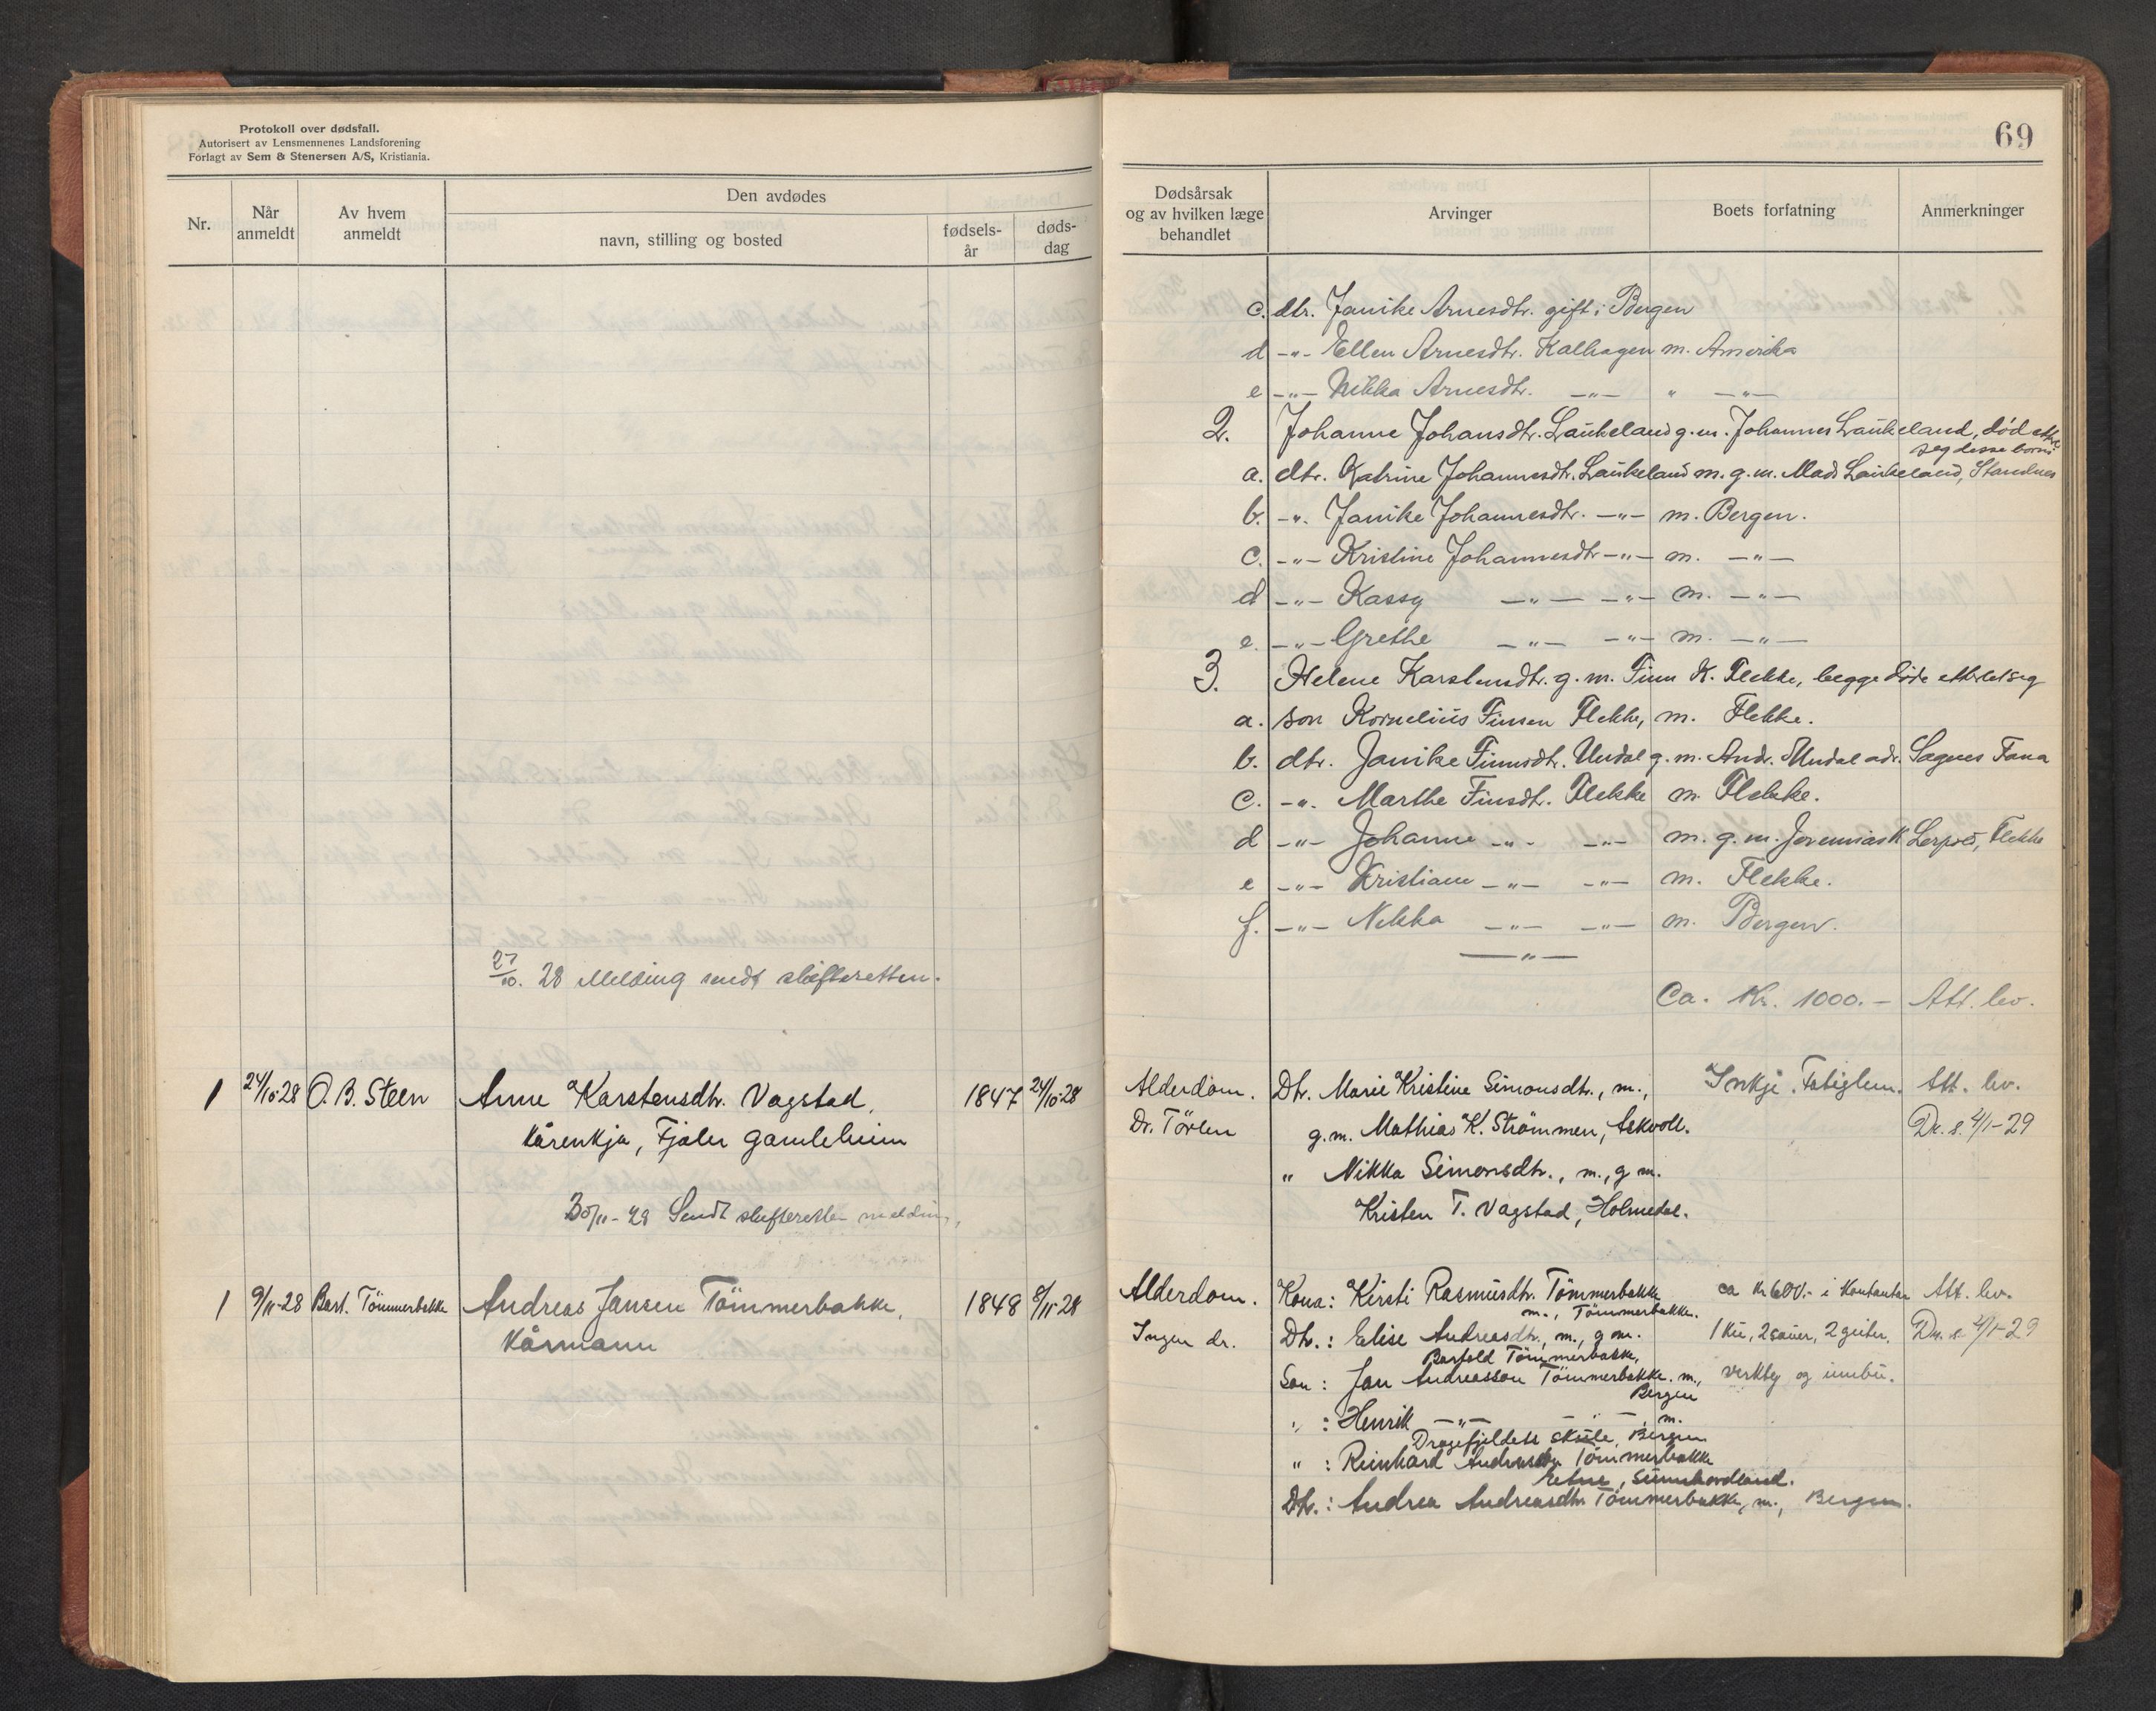 Protokoll over dødsfall.
Autorisert av Lensmennenes Landsforening
Forlagt av Sem & Stenersen A/S, Kristiania.
Nr.
Når anmeldt
Av hvem anmeldt
Den avdødes
navn, stilling og bosted
fødsels-år
døds-dag
27/10. 28 Melding sendt skifteretten.
1 24/10-28 O. B. Steen Anne Karstensdtr. Vagstad, 1847 24/10-28
Kårenkja, Fjaler gamleheim
30/11-28 Sendt skifteretten melding,
1 9/11-28 Bart. Tömmerbakke Andreas Jansen Tömmerbakke, 1848 8/11-28
Kårmann
69
Dødsårsak og av hvilken læge behandlet
Arvinger
Boets forfatning
Anmerkninger
c. dtr. Janike Arnesdtr. gift i Bergen
d -"- Ellen Arnesdtr. Kalhagen m. Amerika
e -"- Nikka Arnesdtr. -"- " -"-
2. Johanne Johansdtr. Laukeland g. m. Johannes Laukeland, död etterl.
seg desse born:
a. dtr. Katrine Johannesdtr. Laukeland m. g. m. Mads Laukeland, Standnes
b. -"- Janike Johannesdtr. -"- m. Bergen.
c. -"- Kristine Johannesdtr -"- m. -"-
d -"- Kassy -"- -"- m. -"-
e. -"- Grethe -"- -"- m. -"-
3. Helene Karstensdtr. g. m. Finn K. Flekke, begge døde etterlet seg
a. son Kornelius Finsen Flekke, m. Flekke.
b. dtr. Janike Finnsdtr. Undal g. m. Andr. Undal adr. Sagnes Fana
c. -"- Marthe Finsdtr. Flekke m. Flekke.
d -"- Johanne -"- -"- m. g. m. Jeremias K Lerpold, Flekke
e -"- Kristiane -"- -"- m. Flekke.
f. -"- Nekka -"- -"- m. Bergen.
-"-
Ca. Kr. 1000.- Att. lev.
Alderdom. Dtr. Marie Kristine Simonsdtr., m., Inkje. Fatiglem. Att. lev.
Dr. Törlen g. m. Mathias K. Strömmen, Askvoll. Dr. s. 4/1-29
" Nikka Simonsdtr., m., g m.
Kristen T. Vagstad, Holmedal.
Alderdom. Kona: Kirsti Rasmusdtr. Tömmerbakke ca kr 600.- i kontantar Att. lev.
m., Tömmerbakke.
Ingen dr. Dtr.: Elise Andreasdtr., m., g m. 1 ku, 2 sauer, 2 geiter, Dr. s. 4/1-29
Bartold Tömmerbakke,
Son: Jan Andreasson Tömmerbakke. m., verkty og innbu.
Bergen
" : Henrik -"- -"- , m.
Dragefjeldets skule, Bergen
" : Reinhard Andreasson Tömmerbakke
Etne, Sunnhordland.
Dtr.: Andrea Andreasdtr Tömmerbakke, m., Bergen.